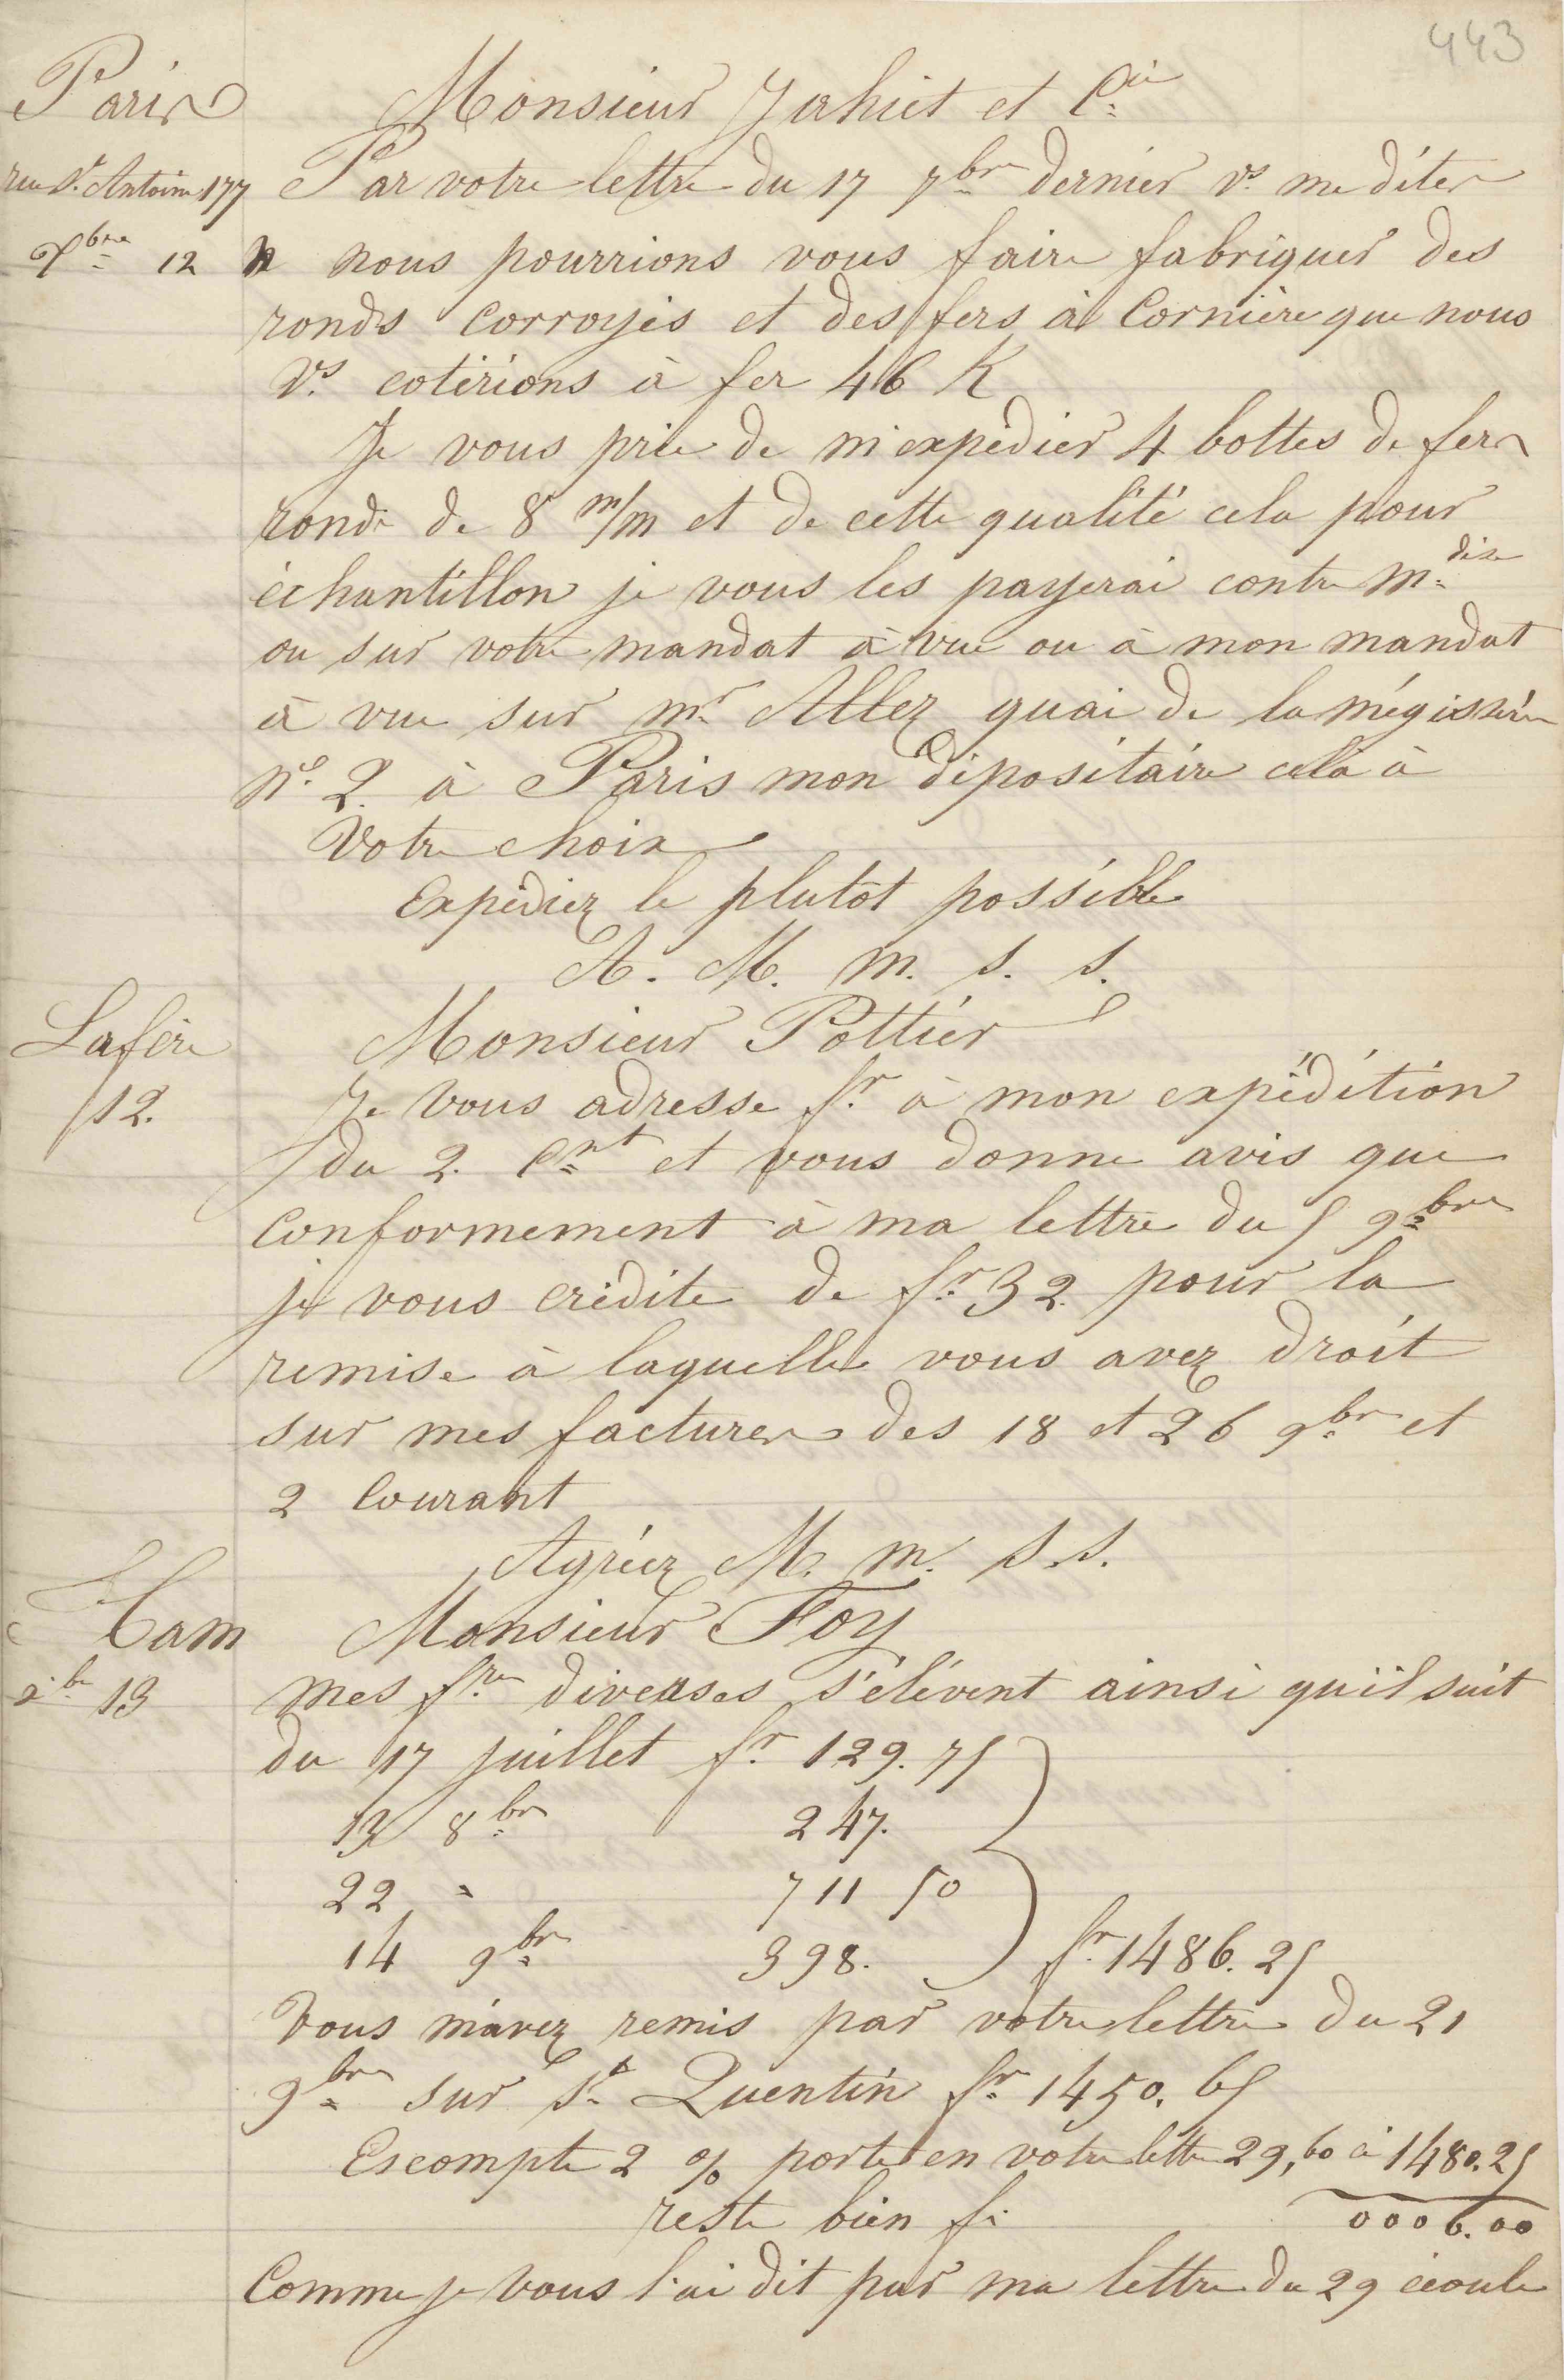 443
Paris
Monsieur Jahiet et Cie
rue St Antoine 177
Par votre lettre du 17 7bre dernier vs me dites
Xbre 12
nous pourrions vous faire fabriquer des
ronds corroyés et des fers à Cornière que nous
Vs coterions à fer 46 K
Je vous prie de m'expédier 4 bottes de fer
rond de 8 m/m et de cette qualité cela pour
échantillon je vous les payerai contre mdise
ou sur votre mandat à vue ou à mon mandat
à vue sur mr Allez quai de la mégisserie
No 2 à Paris mon dépositaire cela à
Votre choix
Expédiez le plutôt possible
A. M. m. s. s.
Lafère
Monsieur Pottier
12.
Je vous adresse fr à mon expédition
du 2 Cnt et vous donne avis que
Conformement à ma lettre du 5 9bre
je vous crédite de fr 32. pour la
remise à laquelle vous avez droit
sur mes factures des 18 et 26 9bre et
2 Courant
Agréez M. m. s. s.
Ham
Monsieur Foy
Xbre 13
mes fres diverses s'élèvent ainsi qu'il suit
du 17 juillet fr 129.75
13 8bre 247.
22 " 711 50
14 9bre 398. fr 1486.25
Vous m'avez remis par votre lettre du 21
9bre sur St Quentin fr 1450.65
Escompte 2 % porté en votre lettre 29,60 à 1480.25
reste bien fr 0006.00
Comme je vous l'ai dit par ma lettre du 29 écoulé